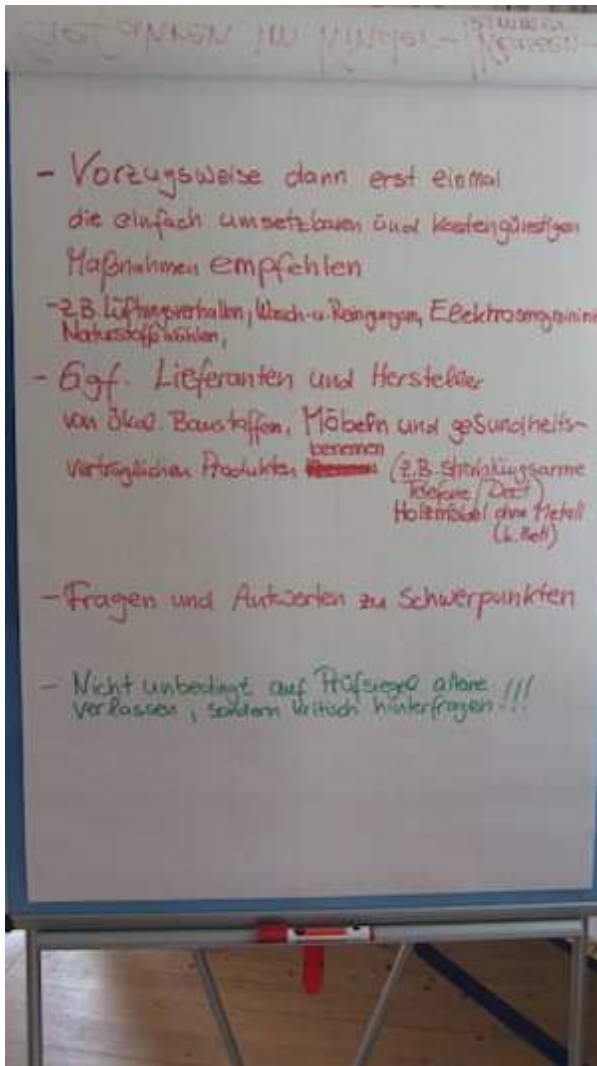 IM KINDER-
- Vorzugsweise dann erst einmal
die einfach umsetzbaren und kostengünstigen
Maßnahmen empfehlen
- z.B. Lüftungsverhalten, Wasch-u. Reinigungsm, Elektrosmogminim
Naturstoffe wählen,
- Ggf. Lieferanten und Hersteller
von ökol. Baustoffen, Möbeln und gesundheits-
verträglichen Produkten benennen (z.B. strahlungsarme
Telefone (Dect)
Holzmöbel ohne Metall
(b. Bett)
- Fragen und Antworten zu Schwerpunkten
- Nicht unbedingt auf Prüfsiegel alleine
verlassen, sondern kritisch hinterfragen!!!